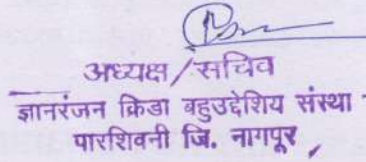 अध्यक्ष/सचिव
ज्ञानरंजन क्रिडा बहुउद्देशिय संस्था
पारशिवनी जि. नागपूर